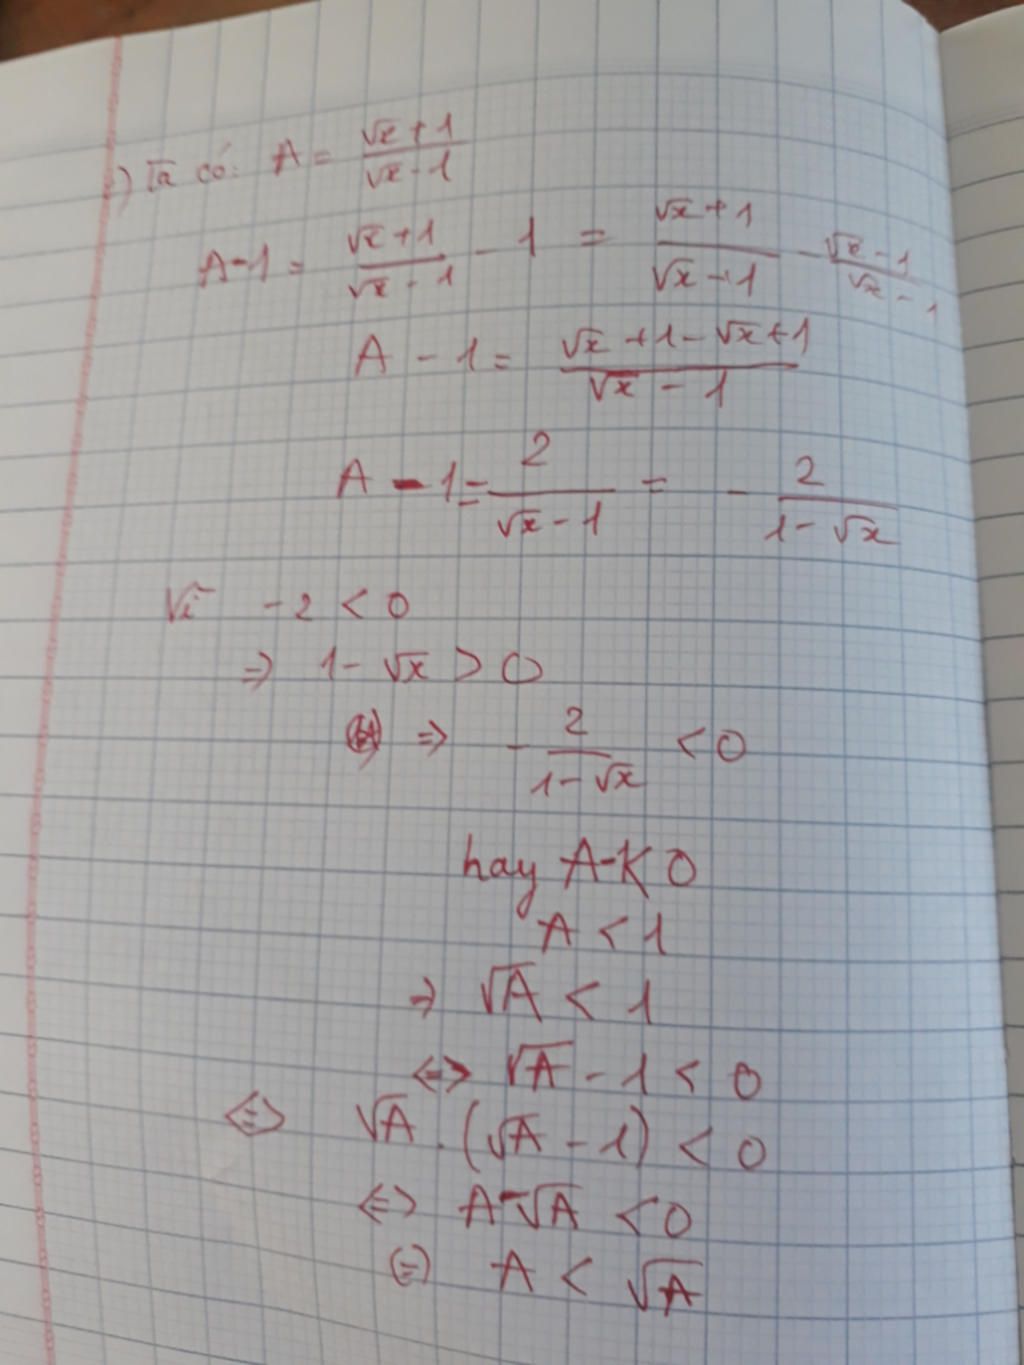 c) Ta có: A = (√x + 1)/(√x - 1)
A - 1 = (√x + 1)/(√x - 1) - 1 = (√x + 1)/(√x - 1) - (√x - 1)/(√x - 1)
A - 1 = (√x + 1 - √x + 1)/(√x - 1)
A - 1 = 2/(√x - 1) = - 2/(1 - √x)
Vì - 2 < 0
⇒ 1 - √x > 0
⇒ - 2/(1 - √x) < 0
hay A - 1 < 0
A < 1
⇒ √A < 1
⇔ √A - 1 < 0
⇔ √A . (√A - 1) < 0
⇔ A - √A < 0
⇔ A < √A